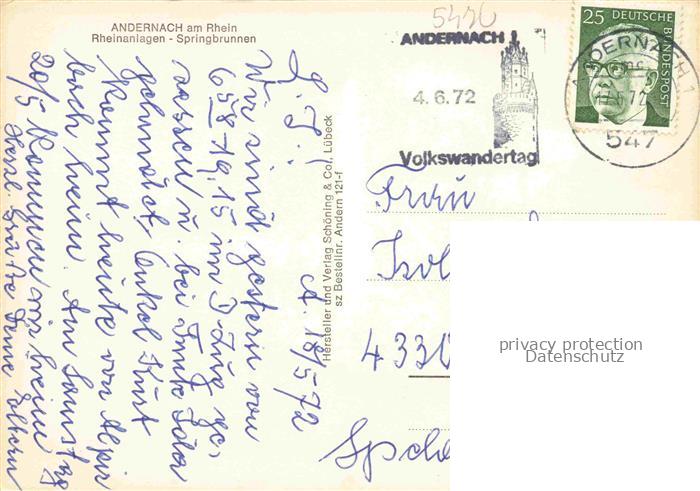 ANDERNACH am Rhein
Rheinanlagen - Springbrunnen
5420
ANDERNACH
4.6.72
Volkswandertag
25 DEUTSCHE BUNDESPOST
ANDERNACH 1
547
A. 18/5 72
L. I.!
Wir sind gestern von
6 58 - 19, 15 im D-Zug ge-
sessen u. bei Tante
Onkel Kurt
kommt heute von
heim. Am Samstag
20/5 kommen wir heim
Herzl. Grüße Deine Eltern
Hersteller und Verlag Schöning & Co., Lübeck
sz Bestellnr. Andern 121-f
Frau
4330
privacy protection
Datenschutz